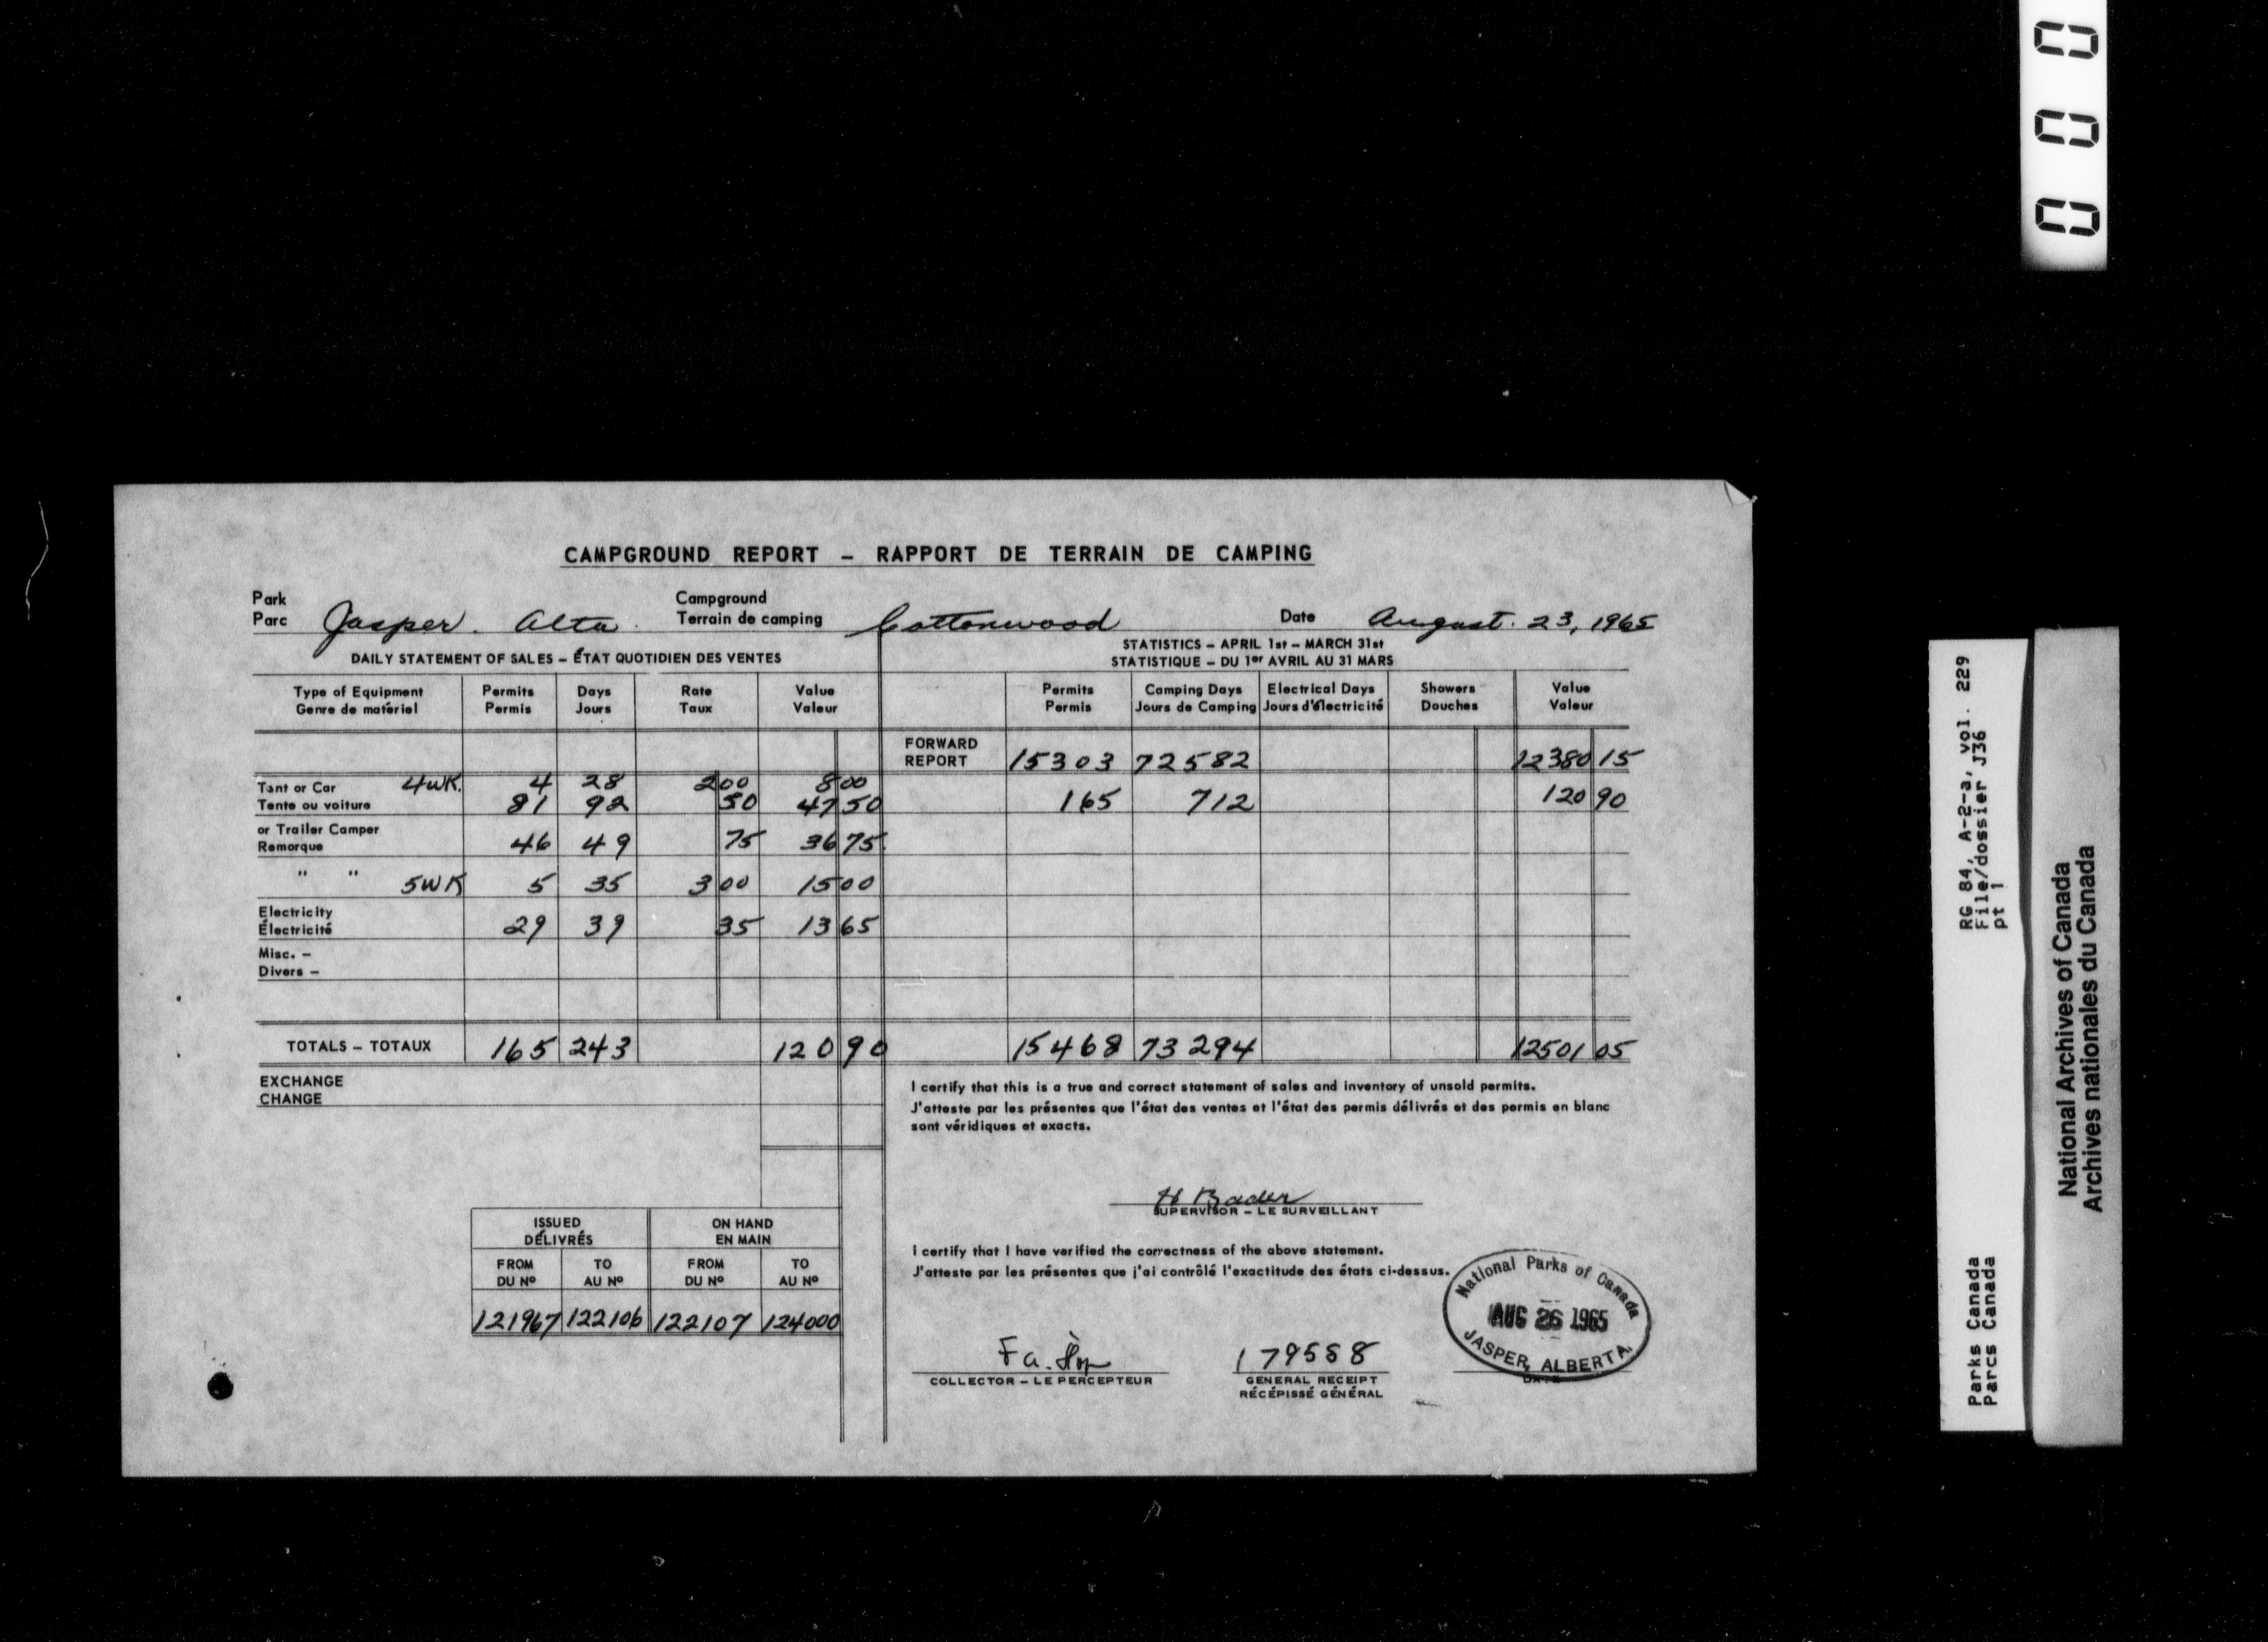 CAMPGROUND REPORT – RAPPORT DE TERRAIN DE CAMPING
Park
Parc Jasper. Alta. Campground
Terrain de camping Cottonwood Date August. 23, 1965
DAILY STATEMENT OF SALES – ÉTAT QUOTIDIEN DES VENTES
STATISTICS – APRIL 1st – MARCH 31st
STATISTIQUE – DU 1er AVRIL AU 31 MARS
Type of Equipment Permits Days Rate Value Permits Camping Days Electrical Days Showers Value
Genre de matériel Permis Jours Taux Valeur Permis Jours de Camping Jours d'électricité Douches Valeur
FORWARD
REPORT 15303 72582 12380 15
Tent or Car 4WK. 4 28 2 00 8 00
Tente ou voiture 81 92 50 47 50 165 712 120 90
or Trailer Camper
Remorque 46 49 75 36 75
" " 5WK 5 35 3 00 15 00
Electricity
Électricité 29 39 35 13 65
Misc. –
Divers –
TOTALS – TOTAUX 165 243 120 90 15468 73294 12501 05
EXCHANGE
CHANGE
I certify that this is a true and correct statement of sales and inventory of unsold permits.
J'atteste par les présentes que l'état des ventes et l'état des permis délivrés et des permis en blanc
sont véridiques et exacts.
H Bader
SUPERVISOR – LE SURVEILLANT
ISSUED ON HAND
DÉLIVRÉS EN MAIN
FROM TO FROM TO
DU Nº AU Nº DU Nº AU Nº
121967 122106 122107 124000
I certify that I have verified the correctness of the above statement.
J'atteste par les présentes que j'ai contrôlé l'exactitude des états ci-dessus.
179558
COLLECTOR – LE PERCEPTEUR GENERAL RECEIPT
RÉCÉPISSÉ GÉNÉRAL
DATE
National Parks of Canada
AUG 26 1965
JASPER, ALBERTA.
000
RG 84, A-2-a, vol. 229
File/dossier J36
pt 1
Parks Canada
Parcs Canada
National Archives of Canada
Archives nationales du Canada